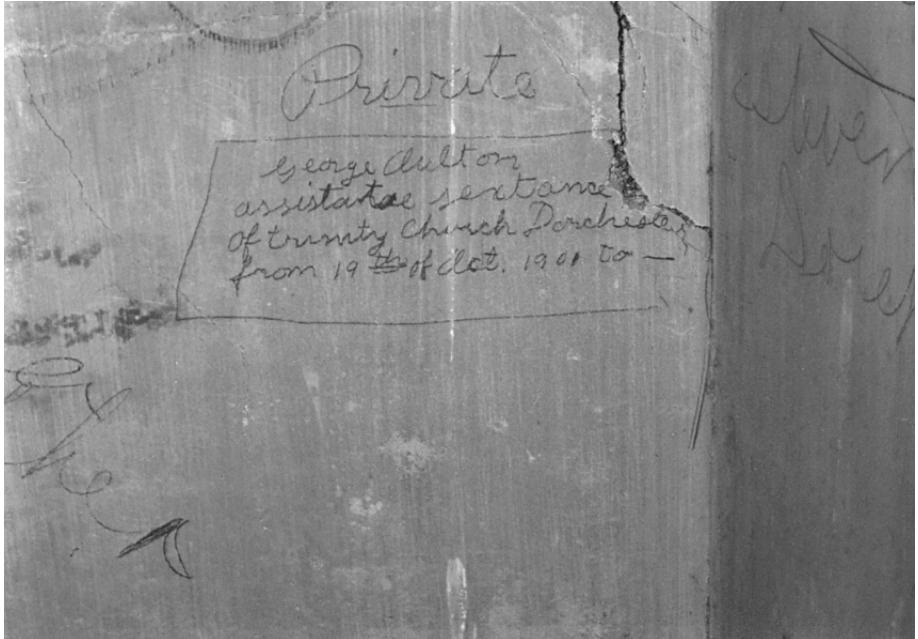 Private
George Aulton
assistante sextance
Of trinity Church Dorchester
from 19th of Oct. 1901 to —